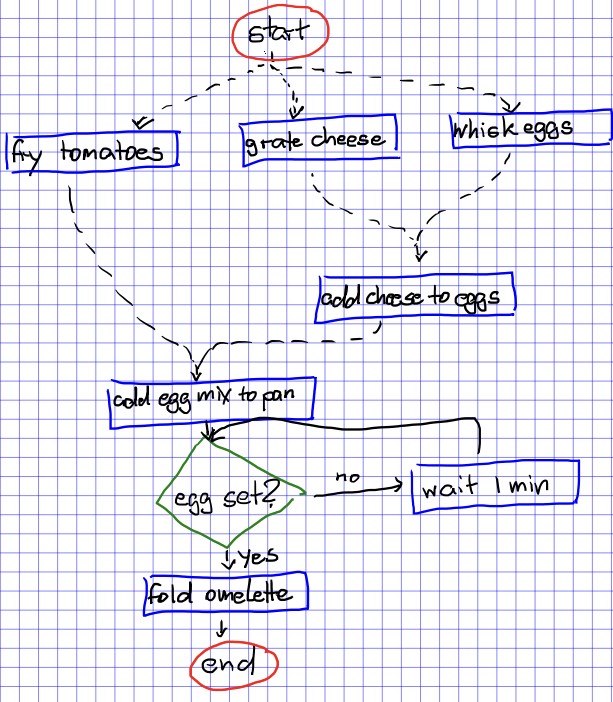 start
fry tomatoes
grate cheese
whisk eggs
add cheese to eggs
add egg mix to pan
egg set?
no
wait 1 min
yes
fold omelette
end